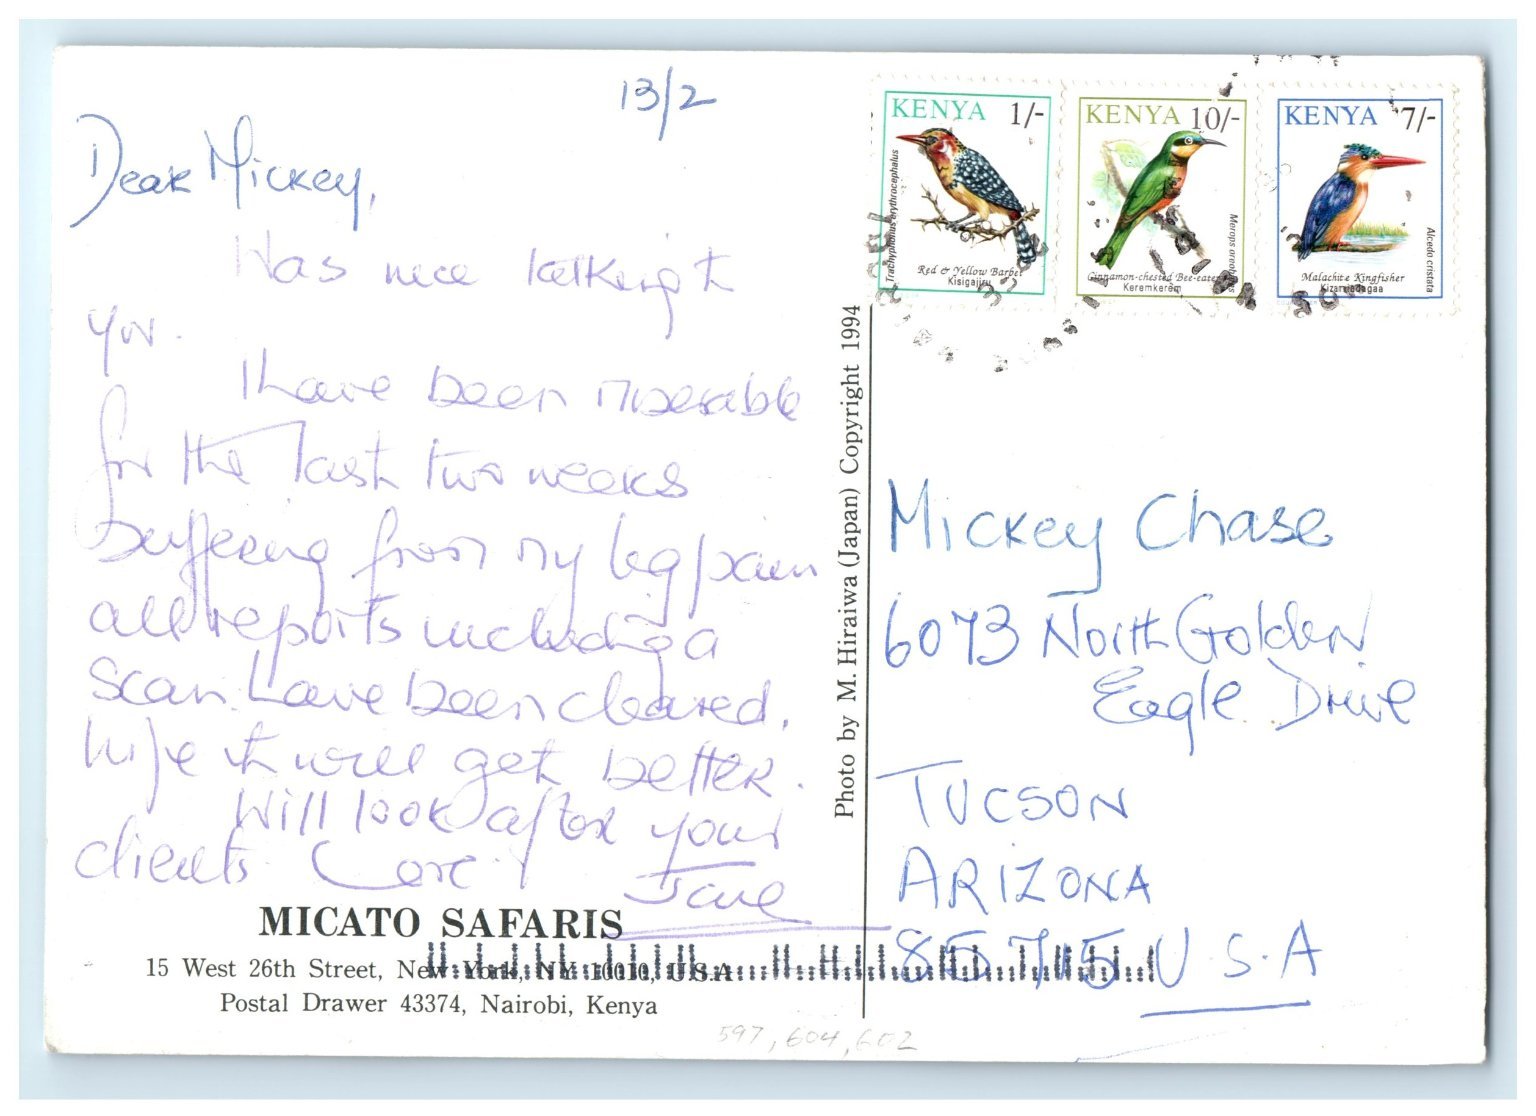 13/2
Dear Mickey,
Was nice talking to
you.
I have been miserable
for the last two weeks
suffering from my leg pain
all reports including a
scan have been cleared.
hope it will get better.
Will look after your
clients. Love
Jane
MICATO SAFARIS
15 West 26th Street, New York, NY 10010, U.S.A
Postal Drawer 43374, Nairobi, Kenya
Photo by M. Hiraiwa (Japan) Copyright 1994
KENYA 1/-
Trachyphonus erythrocephalus
Red & Yellow Barbet
Kisigajiru
KENYA 10/-
Merops oreobates
Cinnamon-chested Bee-eater
Keremkerem
KENYA 7/-
Alcedo cristata
Malachite Kingfisher
Kizamiadagaa
Mickey Chase
6073 North Golden
Eagle Drive
TUCSON
ARIZONA
85715 U.S.A
597, 604, 602